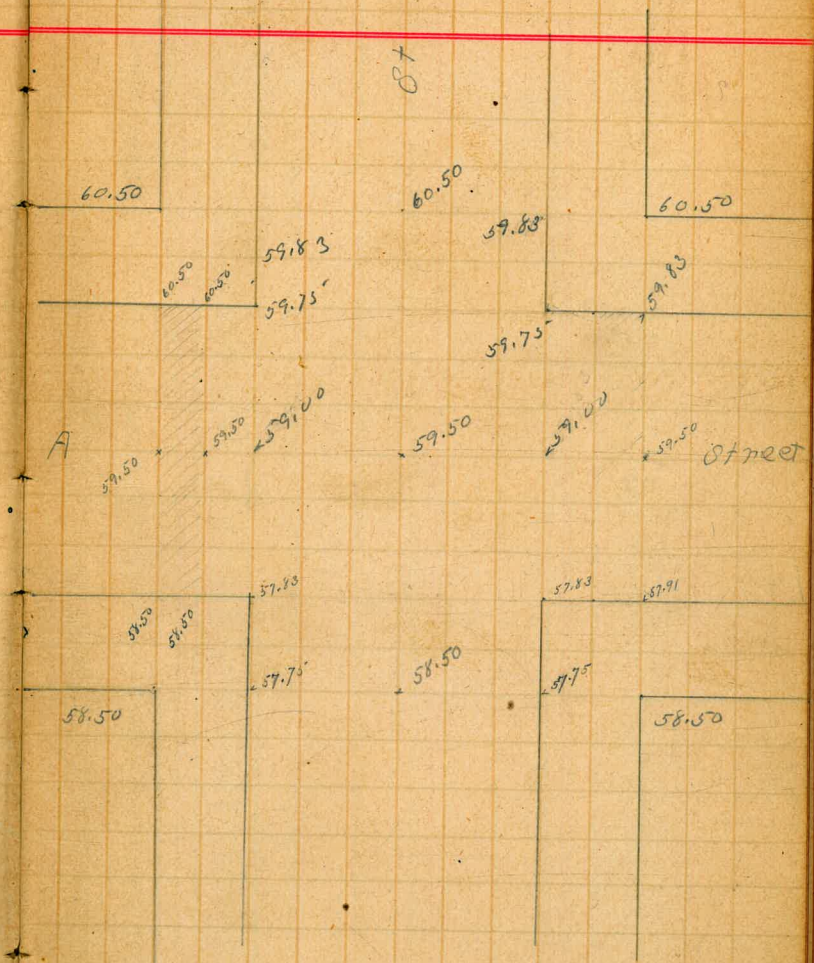 St
60.50
60.50
60.50
59.83
59.83
60.50
60.50
59.83
59.75
59.75
A
59.50
59.50
59.00
59.50
59.00
59.50
Street
57.83
57.83
57.91
58.50
58.50
57.75
58.50
57.75
58.50
58.50